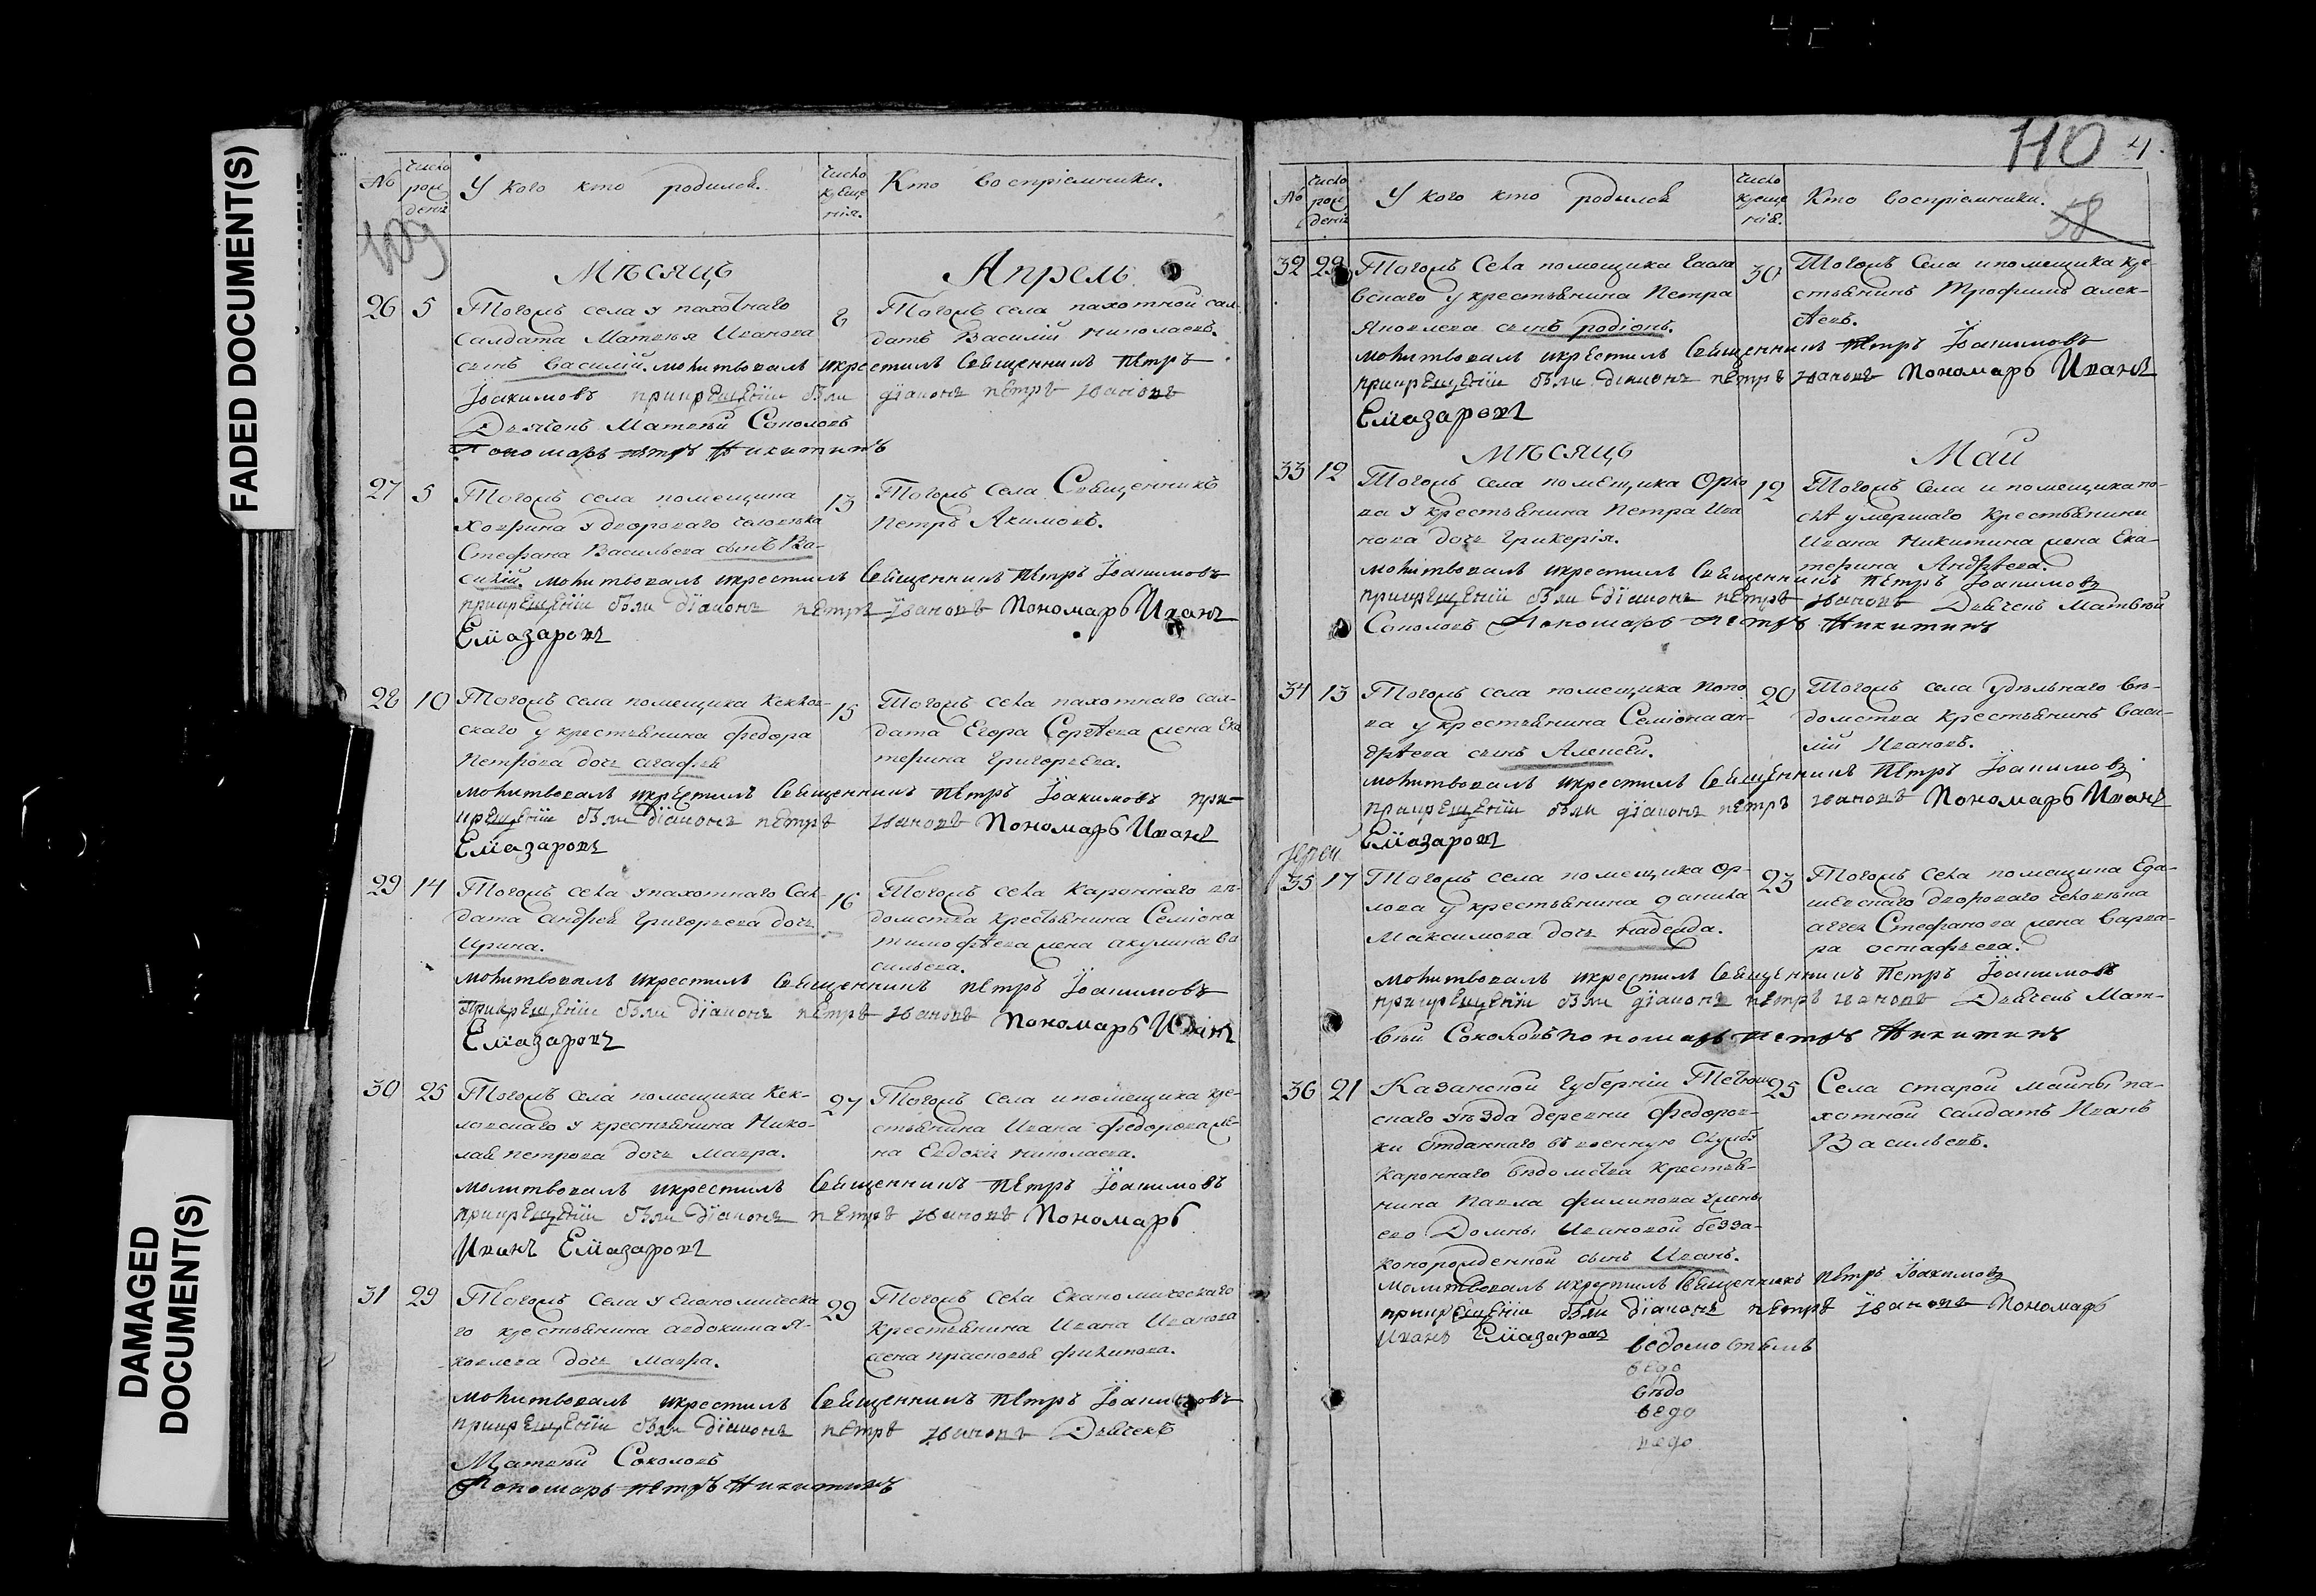 FADED DOCUMENT(S)
DAMAGED
DOCUMENT(S)
№
число рож дения
У кого кто родился.
число креще нія.
Кто воспріемники.
109
Мѣсяцъ Апрель
26 5 Тогожъ села у пахотнаго
салдата Матвея Иванова
сынъ Василій. молитвовалъ икрестилъ Священникъ Петръ
Іоакимовъ прикрещеніи были діаконъ петръ ивановъ
Дьячекъ Матвѣй Соколовъ
Пономарь петръ Никитинъ
8 Тогожъ села пахотной сал-
датъ Василій Николаевъ.
27 5 Тогожъ села помещика
Ховрина у двороваго человѣка
Стефана Васильева сынъ Ва-
силій. молитвовалъ икрестилъ Священникъ Петръ Іоакимовъ
прикрещеніи были діаконъ петръ ивановъ Пономарь Иванъ
Елиазаровъ
13 Тогожъ села Священникъ
Петръ Акимовъ.
28 10 Тогожъ села помещика Кекков-
скаго у крестьянина Федора
Петрова дочь агафья
молитвовалъ икрестилъ Священникъ Петръ Іоакимовъ при-
крещеніи были діаконъ петръ ивановъ Пономарь Иванъ
Елиазаровъ
15 Тогожъ села пахотнаго сал-
дата Егора Сергѣева жена Ека
терина Григорьева.
29 14 Тогожъ села упахотнаго Сал-
дата андрея Григорьева дочь
Ирина.
молитвовалъ икрестилъ Священникъ петръ Іоакимовъ
Прикрещеніи были діаконъ петръ ивановъ Пономарь Иванъ
Елиазаровъ
16 Тогожъ села Кароннаго вѣ-
домства крестьянина Семіона
тимофѣева жена акулина Ва
сильева.
30 25 Тогожъ села помещика Кек-
ковскаго у крестьянина Нико-
лая петрова дочь Мавра.
молитвовалъ икрестилъ Священникъ Петръ Іоакимовъ
прикрещеніи были діаконъ петръ ивановъ Пономарь
Иванъ Елиазаровъ
27 Тогожъ села ипомещика кре-
стьянина Ивана Федорова же-
на Евдокія николаева.
31 29 Тогожъ Села у Економическа
го крестьянина авдокима Я-
ковлева дочь Мавра.
молитвовалъ икрестилъ Священникъ Петръ Іоакимовъ
прикрещеніи были діаконъ петръ ивановъ Дьячекъ
Матвѣй Соколовъ
Пономарь петръ Никитинъ
29 Тогожъ села Економическаго
крестьянина Ивана Иванова
жена прасковья филипова.
110 4.
58
№
число рож дения
У кого кто родился
число креще нія.
Кто воспріемники.
32 29 Тогожъ Села помещика
вскаго у крестьянина Петра
Яковлева сынъ родіонъ.
молитвовалъ икрестилъ Священникъ петръ Іоакимовъ
прикрещеніи были діаконъ петръ ивановъ Пономарь Иванъ
Елиазаровъ
30 Тогожъ Села ипомещика кре-
стьянинъ Трофимъ алек-
сѣевъ.
Мѣсяцъ Май
33 12 Тогожъ села помещика Орло
ва у крестьянина Петра Ива
нова дочь Гликерія.
молитвовалъ икрестилъ Священникъ Петръ Іоакимовъ
прикрещеніи были діаконъ петръ ивановъ Дьячекъ Матвѣй
Соколовъ Пономарь петръ Никитинъ
12 Тогожъ Села и помещика по-
слѣ умершаго Крестьянина
Ивана Никитина жена Ека-
терина Андрѣева.
34 13 Тогожъ села помещика Попо
ва у крестьянина Семіона ан-
дрѣева сынъ Алексѣй.
молитвовалъ икрестилъ Священникъ Петръ Іоакимовъ
прикрещеніи были діаконъ петръ ивановъ Пономарь Иванъ
Елиазаровъ
20 Тогожъ села удѣльнаго вѣ-
домства Крестьянинъ Васи-
лій Ивановъ.
Іерей
35 17 Тогожъ села помещика Ор-
лова у крестьянина данила
Максимова дочь надежда.
молитвовалъ икрестилъ Священникъ Петръ Іоакимовъ
прикрещеніи были діаконъ петръ ивановъ Дьячекъ Мат-
вѣй Соколовъ пономарь петръ Никитинъ
23 Тогожъ Села помещика
двороваго человѣка
Стефанова жена Варва-
ра остафьева.
36 21 Казанской Губерніи Тетюш
скаго уѣзда деревни Федоров-
ки отданнаго въ военную службу
Кароннаго вѣдомства Крестья-
нина Павла Филипова жены
его Домны Ивановой безза-
конорожденной сынъ Иванъ.
Молитвовалъ икрестилъ Священникъ Петръ Іоакимовъ
прикрещеніи были діаконъ петръ ивановъ Пономарь
Иванъ Елиазаровъ
25 Села старой майны па-
хотной салдатъ Иванъ
Васильевъ.
ведомо
ведо
вѣдо
ведо
ведо